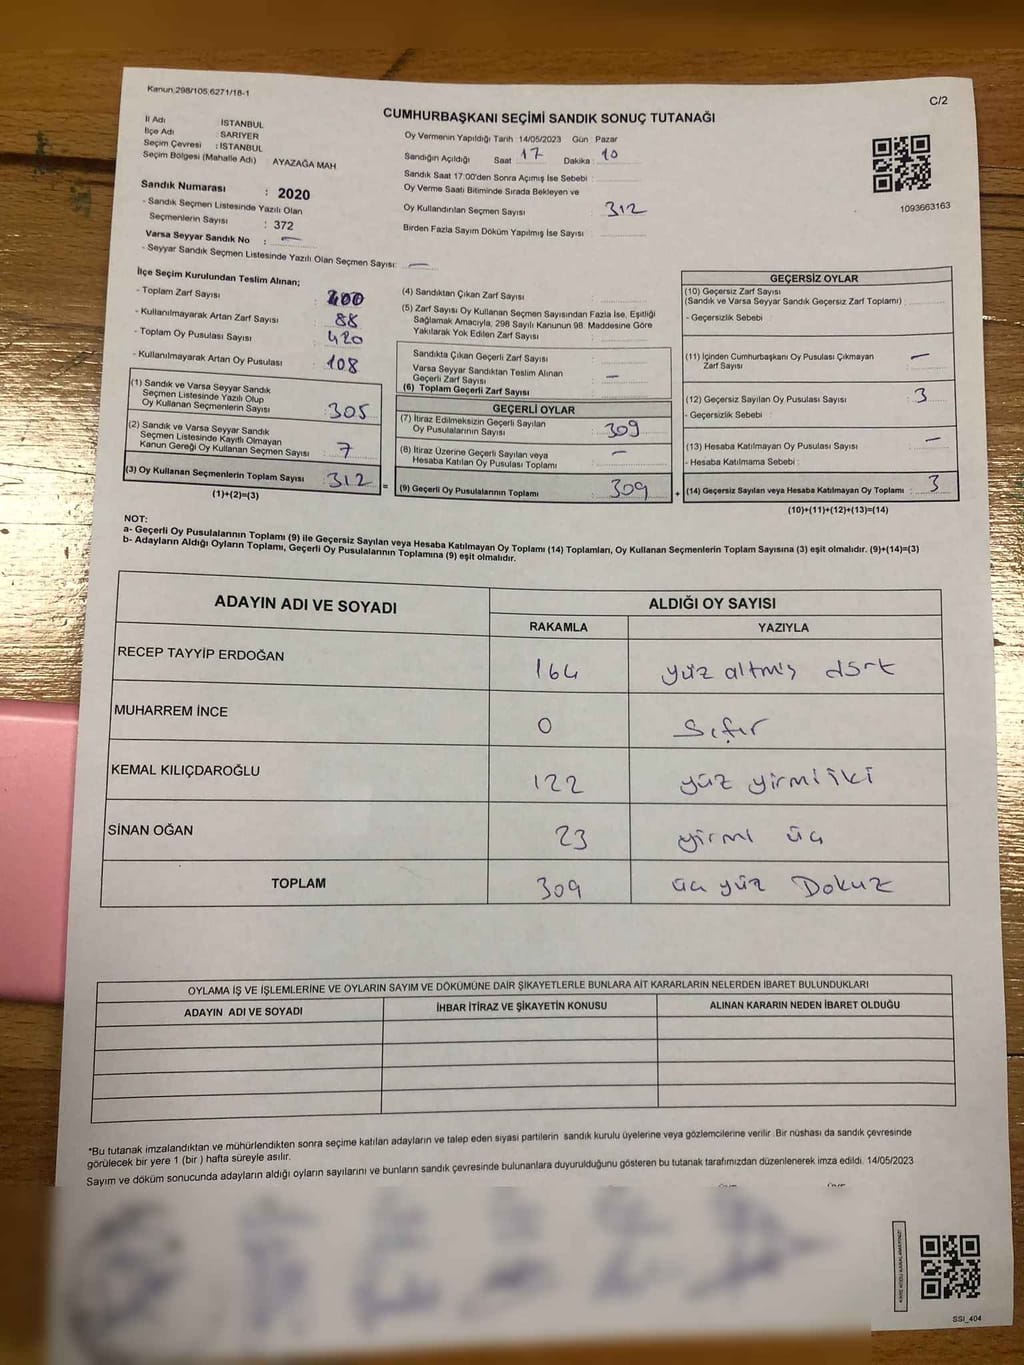 Kanun:298/105,6271/18-1
C/2
CUMHURBAŞKANI SEÇİMİ SANDIK SONUÇ TUTANAĞI
İl Adı : İSTANBUL
İlçe Adı : SARIYER
Seçim Çevresi : İSTANBUL
Seçim Bölgesi (Mahalle Adı) : AYAZAĞA MAH
Sandık Numarası : 2020
- Sandık Seçmen Listesinde Yazılı Olan
Seçmenlerin Sayısı : 372
Varsa Seyyar Sandık No : –
- Seyyar Sandık Seçmen Listesinde Yazılı Olan Seçmen Sayısı: –
Oy Vermenin Yapıldığı Tarih 14/05/2023 Gün Pazar
Sandığın Açıldığı Saat 17 Dakika : 10
Sandık Saat 17:00'den Sonra Açımış İse Sebebi :
Oy Verme Saati Bitiminde Sırada Bekleyen ve
Oy Kullandırılan Seçmen Sayısı : 312
Birden Fazla Sayım Döküm Yapılmış İse Sayısı :
1093663163
İlçe Seçim Kurulundan Teslim Alınan;
- Toplam Zarf Sayısı : 400
- Kullanılmayarak Artan Zarf Sayısı : 88
- Toplam Oy Pusulası Sayısı : 420
- Kullanılmayarak Artan Oy Pusulası : 108
(1) Sandık ve Varsa Seyyar Sandık
Seçmen Listesinde Yazılı Olup
Oy Kullanan Seçmenlerin Sayısı : 305
(2) Sandık ve Varsa Seyyar Sandık
Seçmen Listesinde Kayıtlı Olmayan
Kanun Gereği Oy Kullanan Seçmen Sayısı : 7
(3) Oy Kullanan Seçmenlerin Toplam Sayısı : 312
(1)+(2)=(3)
=
(4) Sandıktan Çıkan Zarf Sayısı :
(5) Zarf Sayısı Oy Kullanan Seçmen Sayısından Fazla İse, Eşitliği
Sağlamak Amacıyla, 298 Sayılı Kanunun 98. Maddesine Göre
Yakılarak Yok Edilen Zarf Sayısı :
Sandıkta Çıkan Geçerli Zarf Sayısı :
Varsa Seyyar Sandıktan Teslim Alınan
Geçerli Zarf Sayısı : –
(6) Toplam Geçerli Zarf Sayısı :
GEÇERLİ OYLAR
(7) İtiraz Edilmeksizin Geçerli Sayılan
Oy Pusulalarının Sayısı : 309
(8) İtiraz Üzerine Geçerli Sayılan veya
Hesaba Katılan Oy Pusulası Toplamı : –
(9) Geçerli Oy Pusulalarının Toplamı : 309
+
GEÇERSİZ OYLAR
(10) Geçersiz Zarf Sayısı
(Sandık ve Varsa Seyyar Sandık Geçersiz Zarf Toplamı) :
- Geçersizlik Sebebi :
(11) İçinden Cumhurbaşkanı Oy Pusulası Çıkmayan
Zarf Sayısı : –
(12) Geçersiz Sayılan Oy Pusulası Sayısı : 3
- Geçersizlik Sebebi :
(13) Hesaba Katılmayan Oy Pusulası Sayısı : –
- Hesaba Katılmama Sebebi :
(14) Geçersiz Sayılan veya Hesaba Katılmayan Oy Toplamı : 3
(10)+(11)+(12)+(13)=(14)
NOT:
a- Geçerli Oy Pusulalarının Toplamı (9) ile Geçersiz Sayılan veya Hesaba Katılmayan Oy Toplamı (14) Toplamları, Oy Kullanan Seçmenlerin Toplam Sayısına (3) eşit olmalıdır. (9)+(14)=(3)
b- Adayların Aldığı Oyların Toplamı, Geçerli Oy Pusulalarının Toplamına (9) eşit olmalıdır.
ADAYIN ADI VE SOYADI ALDIĞI OY SAYISI
RAKAMLA YAZIYLA
RECEP TAYYİP ERDOĞAN 164 yüz altmış dört
MUHARREM İNCE 0 Sıfır
KEMAL KILIÇDAROĞLU 122 yüz yirmi iki
SİNAN OĞAN 23 yirmi üç
TOPLAM 309 üç yüz Dokuz
OYLAMA İŞ VE İŞLEMLERİNE VE OYLARIN SAYIM VE DÖKÜMÜNE DAİR ŞİKAYETLERLE BUNLARA AİT KARARLARIN NELERDEN İBARET BULUNDUKLARI
ADAYIN ADI VE SOYADI İHBAR İTİRAZ VE ŞİKAYETİN KONUSU ALINAN KARARIN NEDEN İBARET OLDUĞU
*Bu tutanak imzalandıktan ve mühürlendikten sonra seçime katılan adayların ve talep eden siyasi partilerin sandık kurulu üyelerine veya gözlemcilerine verilir. Bir nüshası da sandık çevresinde
görülecek bir yere 1 (bir ) hafta süreyle asılır.
Sayım ve döküm sonucunda adayların aldığı oyların sayılarını ve bunların sandık çevresinde bulunanlara duyurulduğunu gösteren bu tutanak tarafımızdan düzenlenerek imza edildi. 14/05/2023
SSI_404